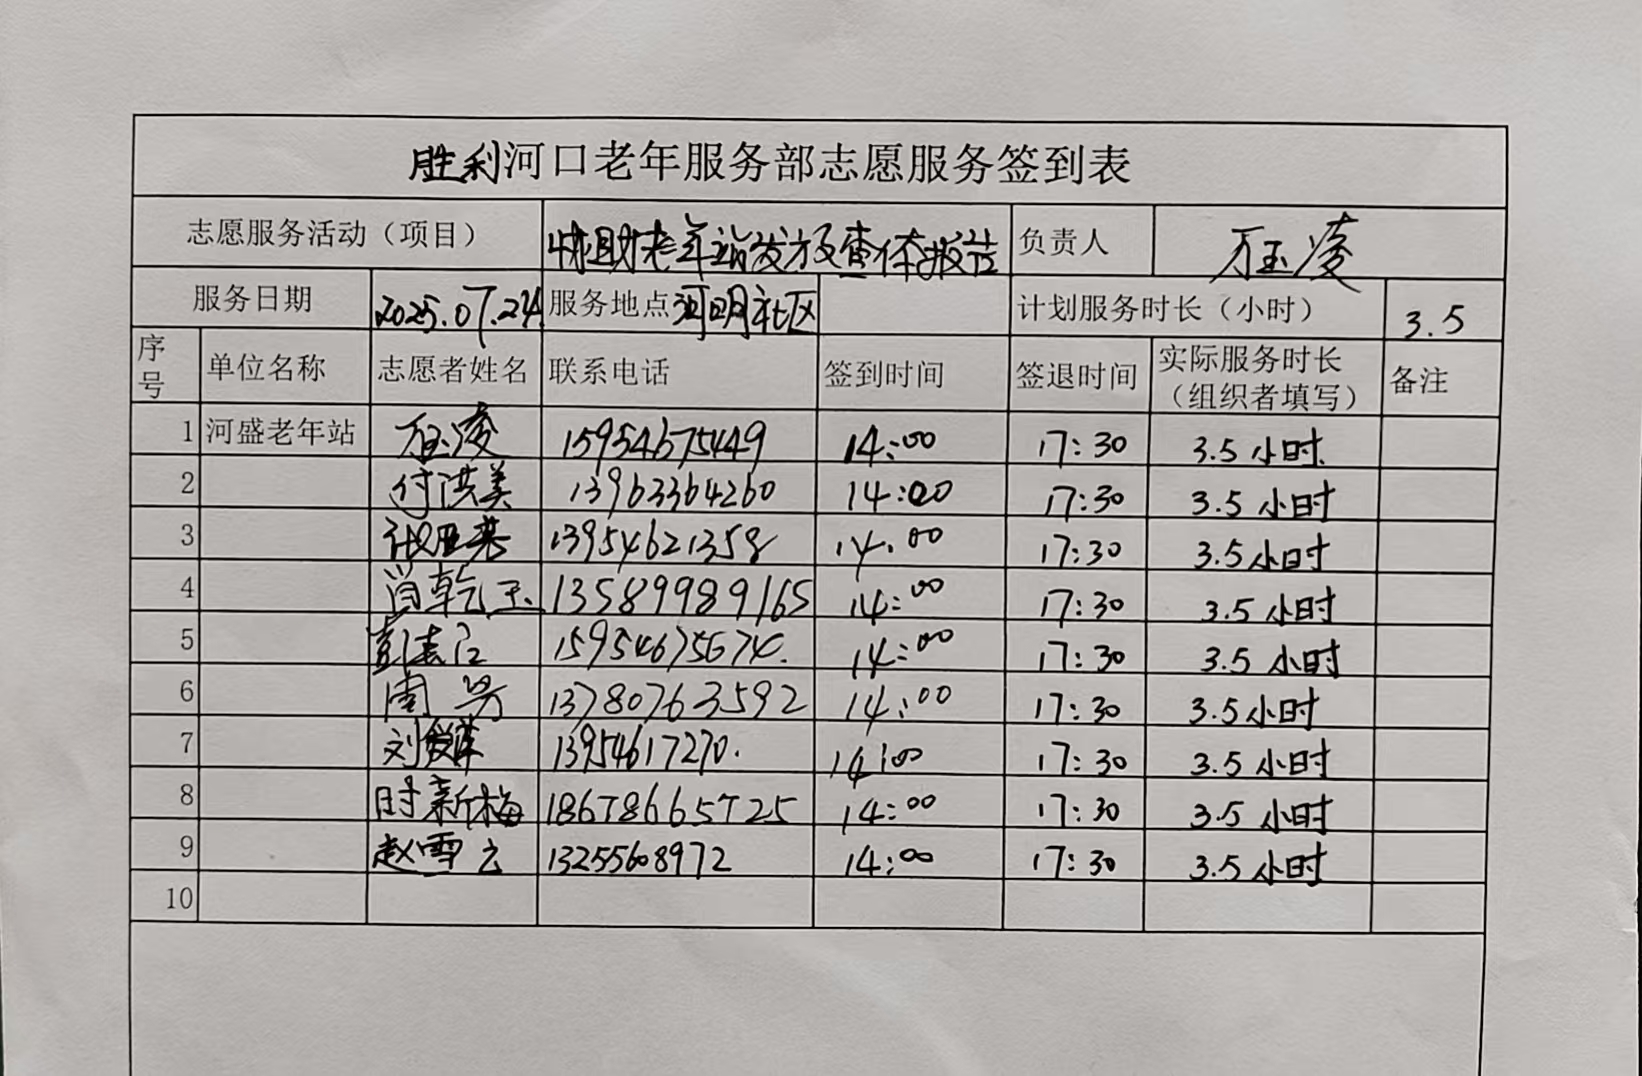 胜利河口老年服务部志愿服务签到表
志愿服务活动（项目） 协助老年站发放查体报告 负责人 万玉凌
服务日期 2025.07.24 服务地点 河明社区 计划服务时长（小时） 3.5
序号 单位名称 志愿者姓名 联系电话 签到时间 签退时间 实际服务时长（组织者填写） 备注
1 河盛老年站 万玉凌 15954675449 14:00 17:30 3.5小时
2 付洪美 13963364260 14:00 17:30 3.5小时
3 13954621358 14:00 17:30 3.5小时
4 闫乾玉 13589989165 14:00 17:30 3.5小时
5 15954675674 14:00 17:30 3.5小时
6 周 13780763592 14:00 17:30 3.5小时
7 刘 13954617270. 14:00 17:30 3.5小时
8 时新梅 18678665725 14:00 17:30 3.5小时
9 赵雪云 13255608972 14:00 17:30 3.5小时
10